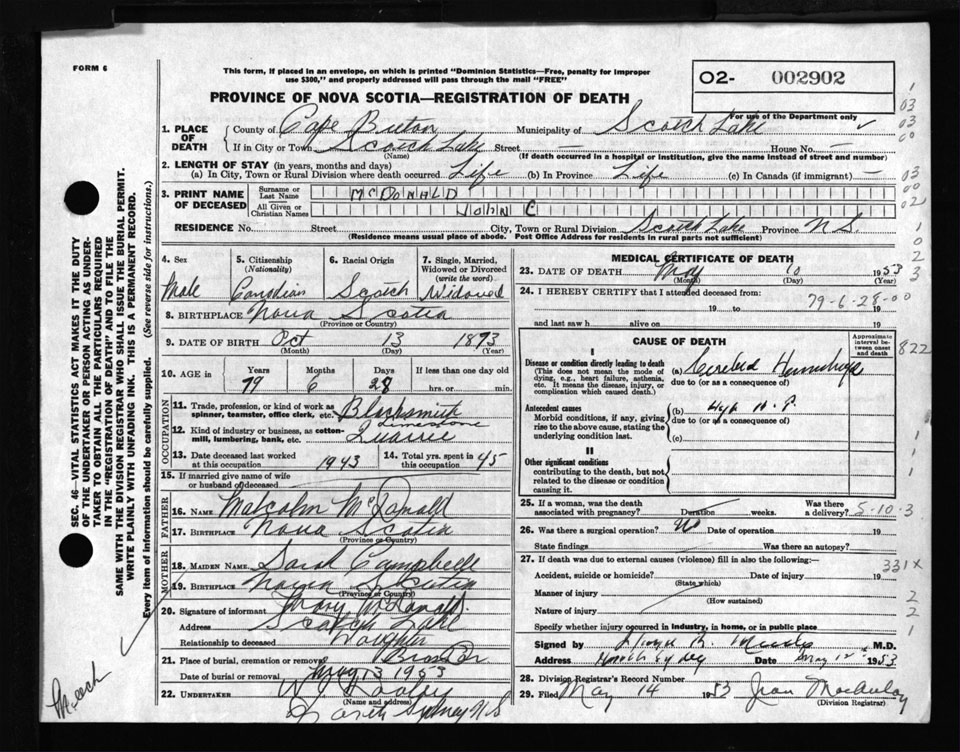 FORM 6
This form, if placed in an envelope, on which is printed "Dominion Statistics—Free, penalty for improper
use $300," and properly addressed will pass through the mail "FREE"
PROVINCE OF NOVA SCOTIA—REGISTRATION OF DEATH
02- 002902
For use of the Department only
1. PLACE OF DEATH
County of Cape Breton Municipality of Scotch Lake
If in City or Town Scotch Lake Street — House No. —
(Name) (If death occurred in a hospital or institution, give the name instead of street and number)
2. LENGTH OF STAY (in years, months and days)
(a) In City, Town or Rural Division where death occurred Life (b) In Province Life (c) In Canada (if immigrant) —
3. PRINT NAME OF DECEASED
Surname or Last Name McDONALD
All Given or Christian Names JOHN C
RESIDENCE No. Street City, Town or Rural Division Scotch Lake Province N.S.
(Residence means usual place of abode. Post Office Address for residents in rural parts not sufficient)
4. Sex
Male
5. Citizenship (Nationality)
Canadian
6. Racial Origin
Scotch
7. Single, Married, Widowed or Divorced (write the word)
Widowed
8. BIRTHPLACE Nova Scotia
(Province or Country)
9. DATE OF BIRTH Oct 13 1873
(Month) (Day) (Year)
10. AGE in
Years Months Days If less than one day
79 6 28 hrs. or min.
OCCUPATION
11. Trade, profession, or kind of work as spinner, teamster, office clerk, etc. Blacksmith
12. Kind of industry or business, as cotton-mill, lumbering, bank, etc. Limestone
13. Date deceased last worked at this occupation 1943
14. Total yrs. spent in this occupation 45
15. If married give name of wife or husband of deceased
FATHER
16. Name Malcolm McDonald
17. Birthplace Nova Scotia
(Province or Country)
MOTHER
18. MAIDEN NAME Sarah Campbelle
19. BIRTHPLACE Nova Scotia
(Province or Country)
20. Signature of informant Mary McDonald.
Address Scotch Lake
Relationship to deceased Daughter
21. Place of burial, cremation or removal
Date of burial or removal May 13 1953
22. UNDERTAKER
(Name and address)
North Sydney N.S
MEDICAL CERTIFICATE OF DEATH
23. DATE OF DEATH May 10 1953
(Month) (Day)
24. I HEREBY CERTIFY that I attended deceased from:
79-6-28-00
19 to 19
and last saw h alive on 19
CAUSE OF DEATH
Approximate interval between onset and death
822
I
Disease or condition directly leading to death
(This does not mean the mode of dying, e.g., heart failure, asthenia, etc. It means the disease, injury, or complication which caused death.)
(a) Cerebral Hemorrhage
due to (or as a consequence of)
Antecedent causes
Morbid conditions, if any, giving rise to the above cause, stating the underlying condition last.
(b)
due to (or as a consequence of)
(c)
II
Other significant conditions
contributing to the death, but not related to the disease or condition causing it.
25. If a woman, was the death associated with pregnancy? Duration weeks. Was there a delivery?
5-10-3
26. Was there a surgical operation? No Date of operation 19
State findings Was there an autopsy?
27. If death was due to external causes (violence) fill in also the following:—
331X
Accident, suicide or homicide? Date of injury 19
(State which)
Manner of injury
(How sustained)
Nature of injury
Specify whether injury occurred in industry, in home, or in public place
Signed by M.D.
Address North Sydney Date May 12th 1953
28. Division Registrar's Record Number
29. Filed May 14 1953 Jean MacAulay
(Division Registrar)
SEC. 46—VITAL STATISTICS ACT MAKES IT THE DUTY
OF THE UNDERTAKER OR PERSON ACTING AS UNDER-
TAKER TO OBTAIN ALL THE PARTICULARS REQUIRED
IN THE "REGISTRATION OF DEATH" AND TO FILE THE
SAME WITH THE DIVISION REGISTRAR WHO SHALL ISSUE THE BURIAL PERMIT.
WRITE PLAINLY WITH UNFADING INK. THIS IS A PERMANENT RECORD.
Every item of information should be carefully supplied. (See reverse side for instructions.)